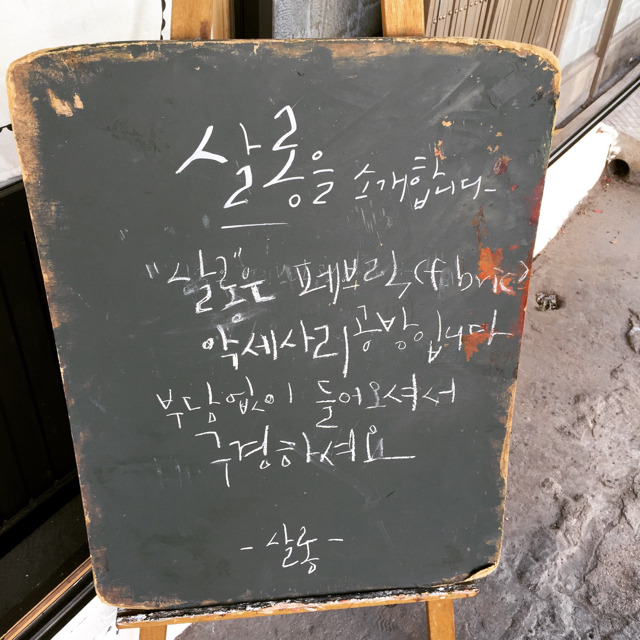 살롱을 소개합니다-
"살롱은 패브릭(fabric)
악세사리공방입니다
부담없이 들어오셔서
구경하셔요
- 살롱 -